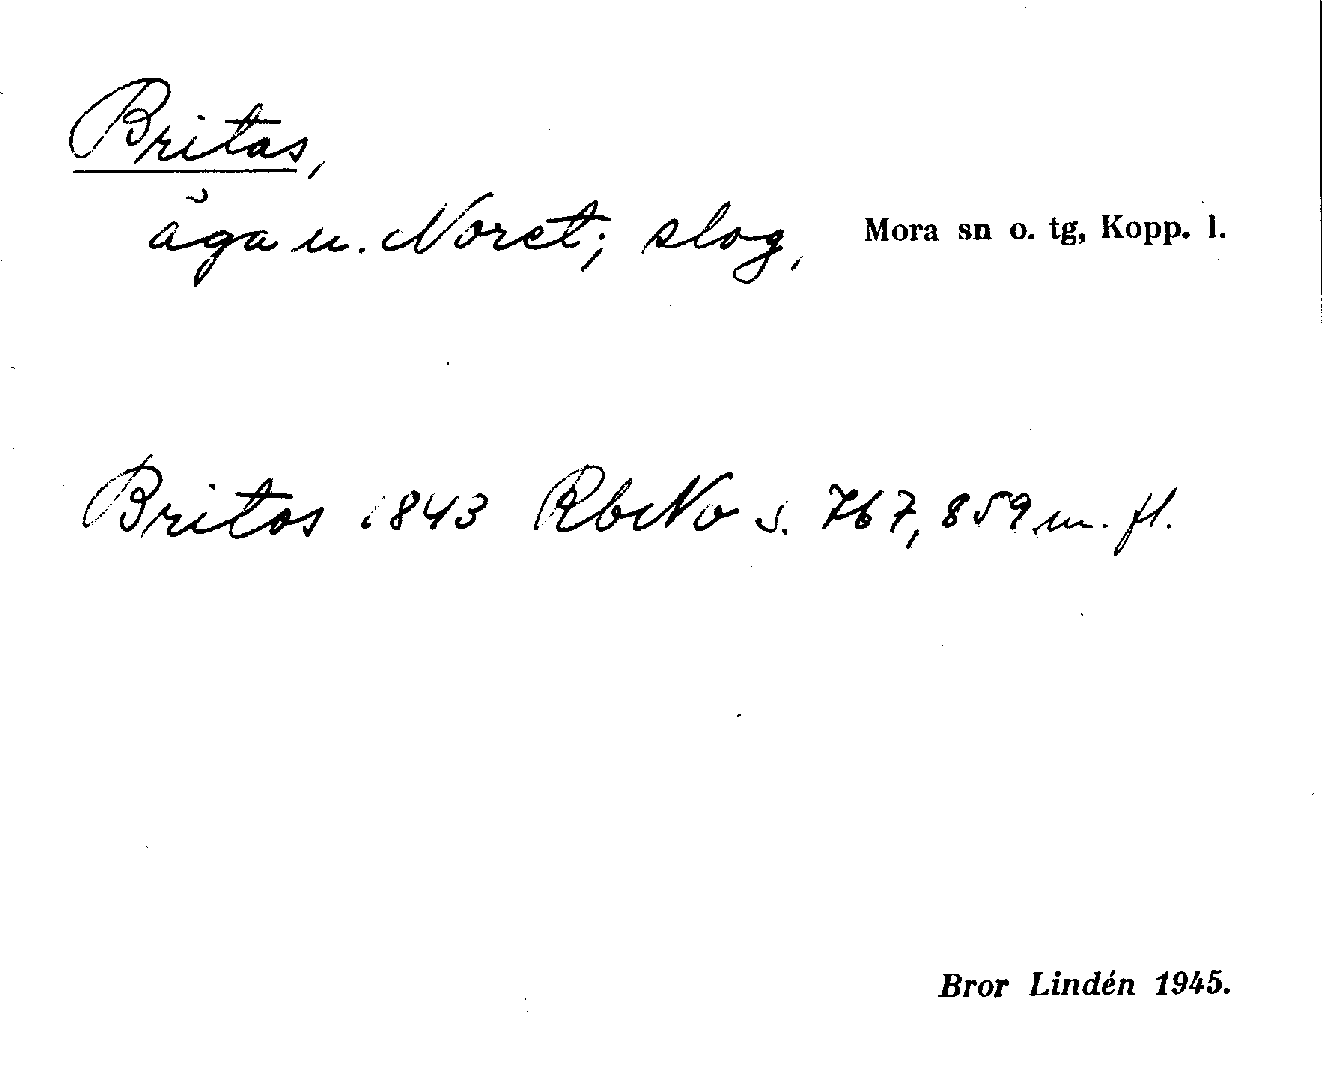 Britas,
äga u. Noret; slog, Mora sn o. tg, Kopp. l.
Britas 1843 RbNo s. 767, 859 m. fl.
Bror Lindén 1945.